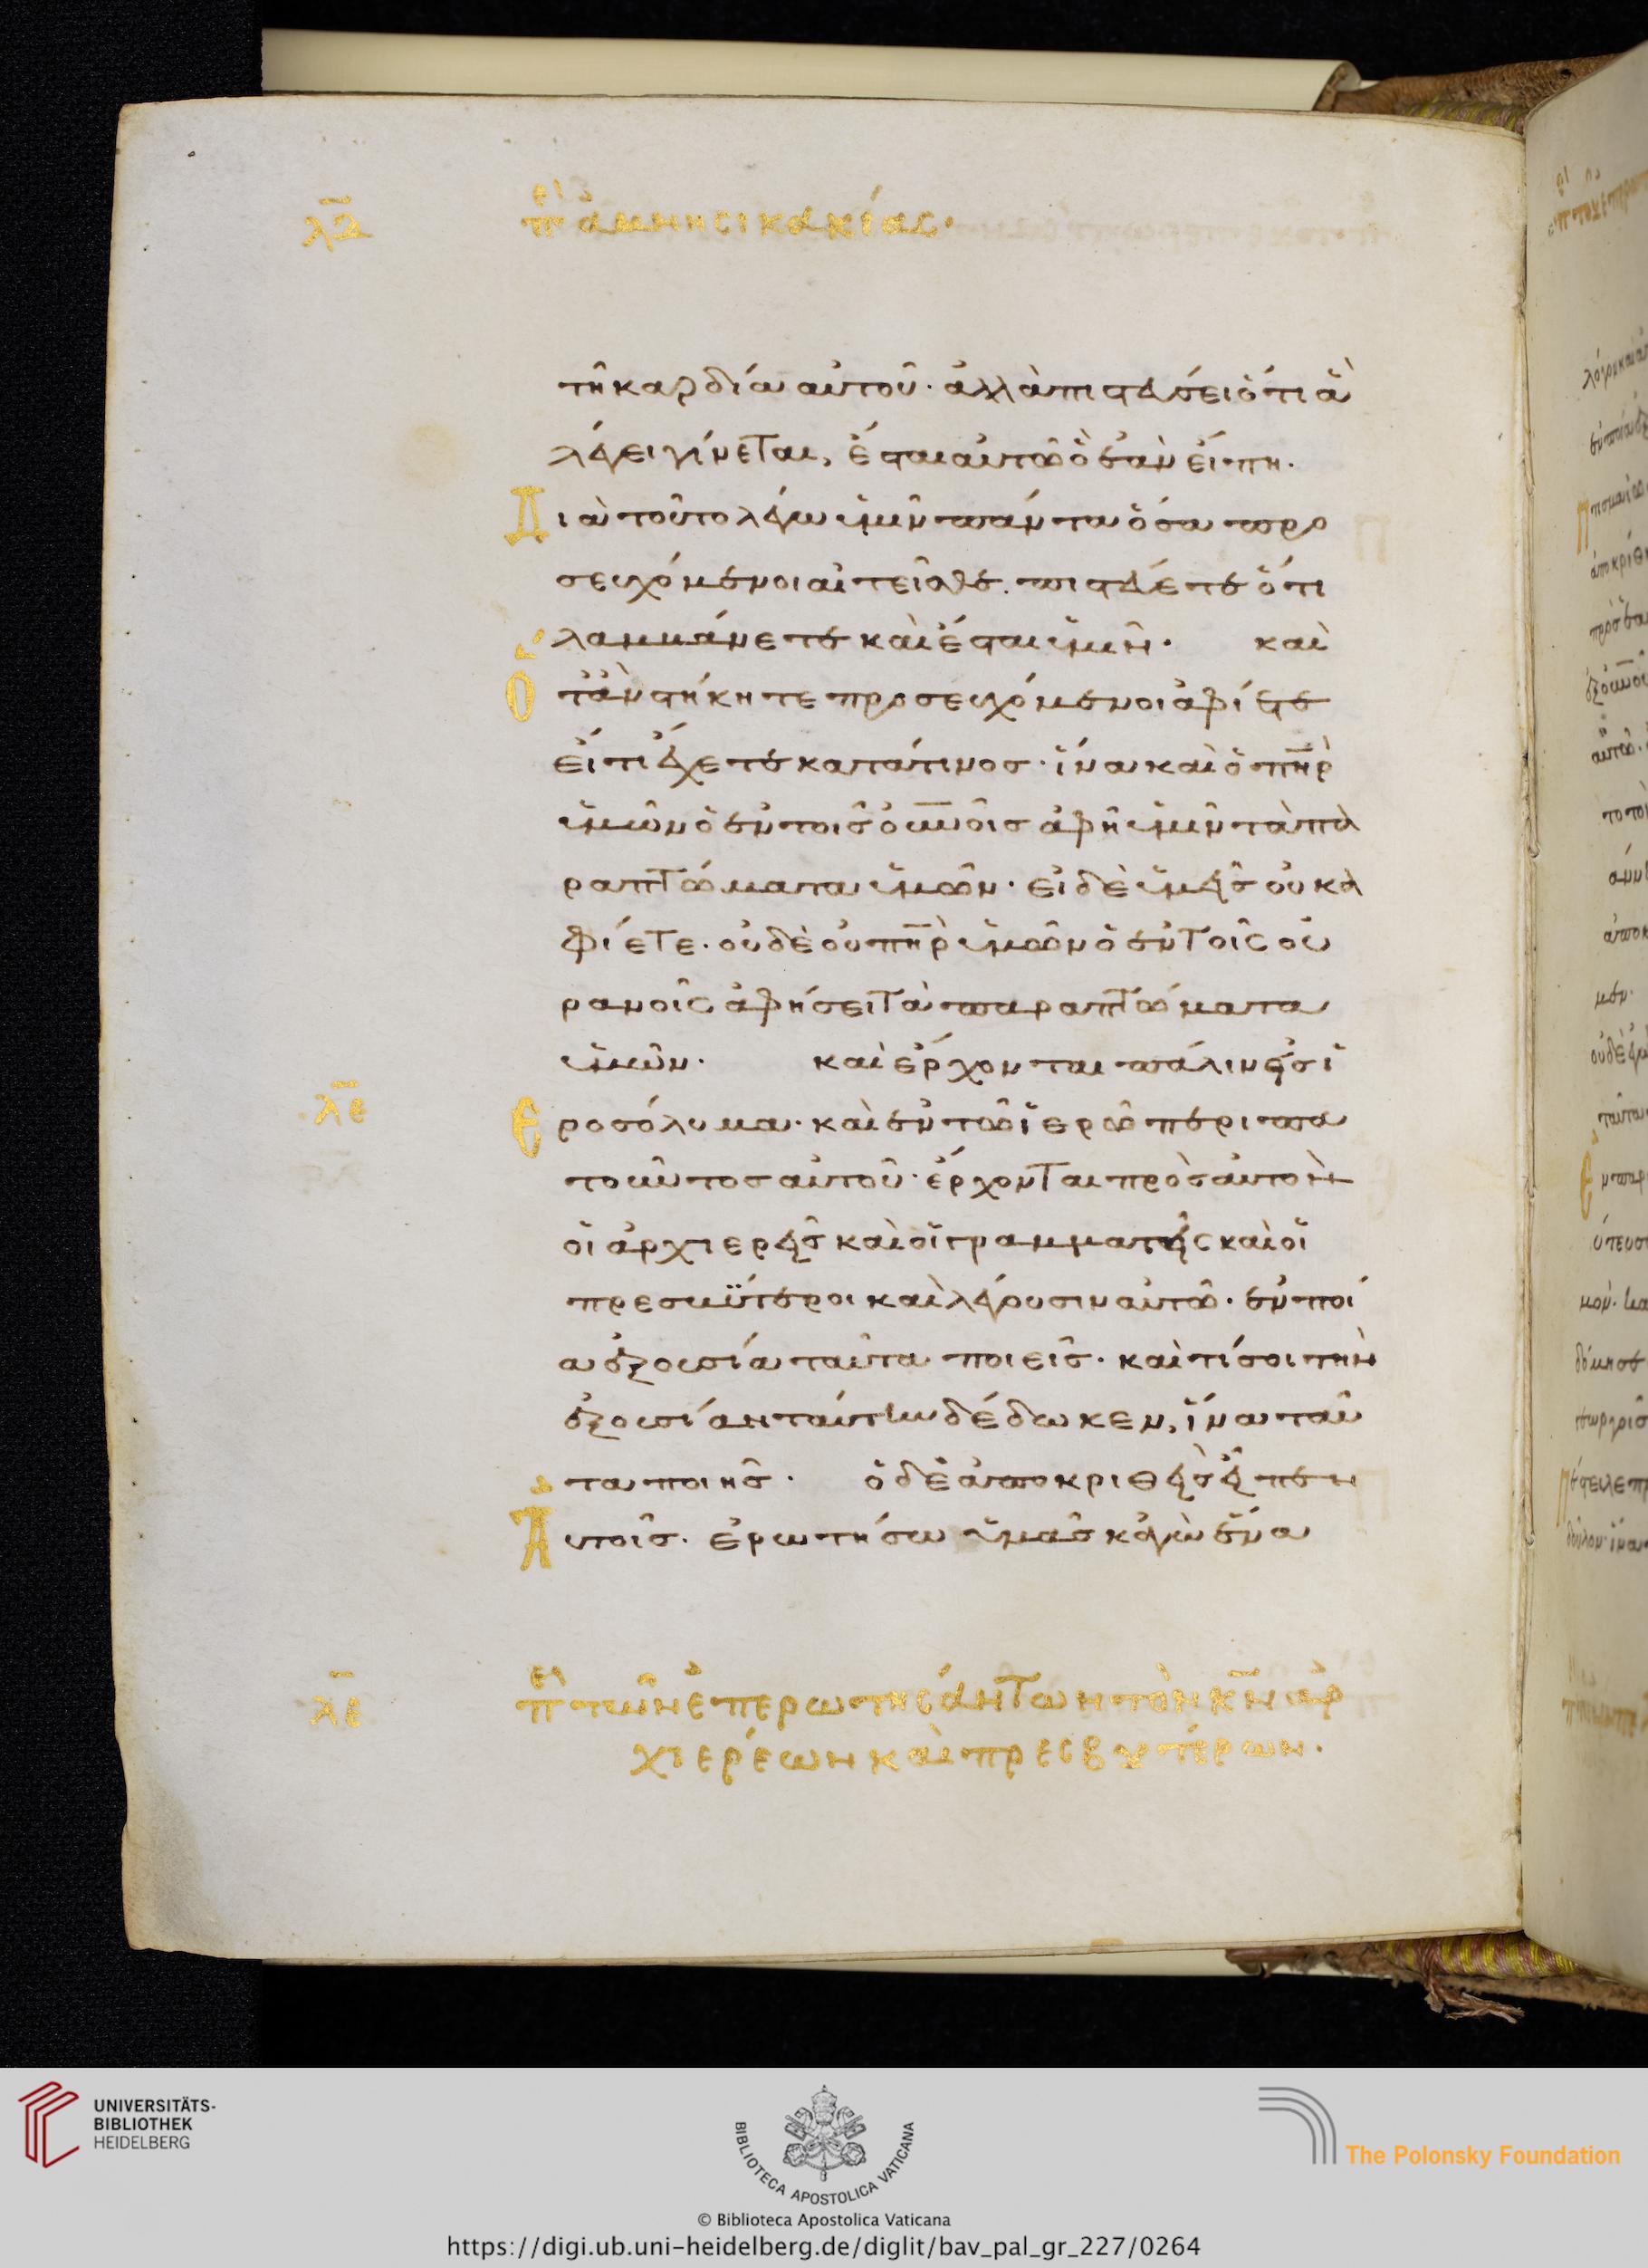 λδ περὶ ἀμνησικακίας·
τῆ καρδία αὐτοῦ· ἀλλὰ πιστεύσει ὅτι ἃ
λέγει γίνεται, ἔσται αὐτῶ ὃ ἐὰν εἴπη.
Διὰ τοῦτο λέγω ὑμῖν πάντα ὅσα προ
σευχόμενοι αἰτεῖσθε. πιστεύετε ὅτι
λαμβάνετε καὶ ἔσται ὑμῖν· καὶ
Ὅταν στήκητε προσευχόμενοι ἀφίετε
εἴ τι ἔχετε κατά τινος· ἵνα καὶ ὁ πηρ
ὑμῶν ὁ ἐν τοῖς οὐνοῖς ἀφῆ ὑμῖν τὰ πα
ραπτώματα ὑμῶν· εἰ δὲ ὑμεῖς οὐκ ἀ
φίετε. οὐδὲ ὁ πηρ ὑμῶν ὁ ἐν τοῖς οὐ
ρανοῖς ἀφήσει τὰ παραπτώματα
ὑμῶν· καὶ ἔρχονται πάλιν εἰς ἱ
λε Εροσόλυμα· καὶ ἐν τῶ ἱερῶ περιπα
τοῦντος αὐτοῦ· ἔρχονται πρὸς αὐτὸν
οἱ ἀρχιερεῖς καὶ οἱ γραμματεῖς καὶ οἱ
πρεσβύτεροι καὶ λέγουσιν αὐτῶ· ἐν ποί
α ἐξουσία ταῦτα ποιεῖς· καὶ τίς σοι τὴν
ἐξουσίαν ταύτην δέδωκεν, ἵνα ταῦ
τα ποιῆς· ὁ δὲ ἀποκριθεὶς εἶπεν
Αυτοῖς· ἐρωτήσω ὑμᾶς κἀγὼ ἕνα
λε περὶ τῶν ἐπερωτησάντων τὸν κν ἀρ
χιερέων καὶ πρεσβυτέρων·
UNIVERSITÄTS-
BIBLIOTHEK
HEIDELBERG
BIBLIOTECA APOSTOLICA VATICANA
The Polonsky Foundation
© Biblioteca Apostolica Vaticana
https://digi.ub.uni-heidelberg.de/diglit/bav_pal_gr_227/0264